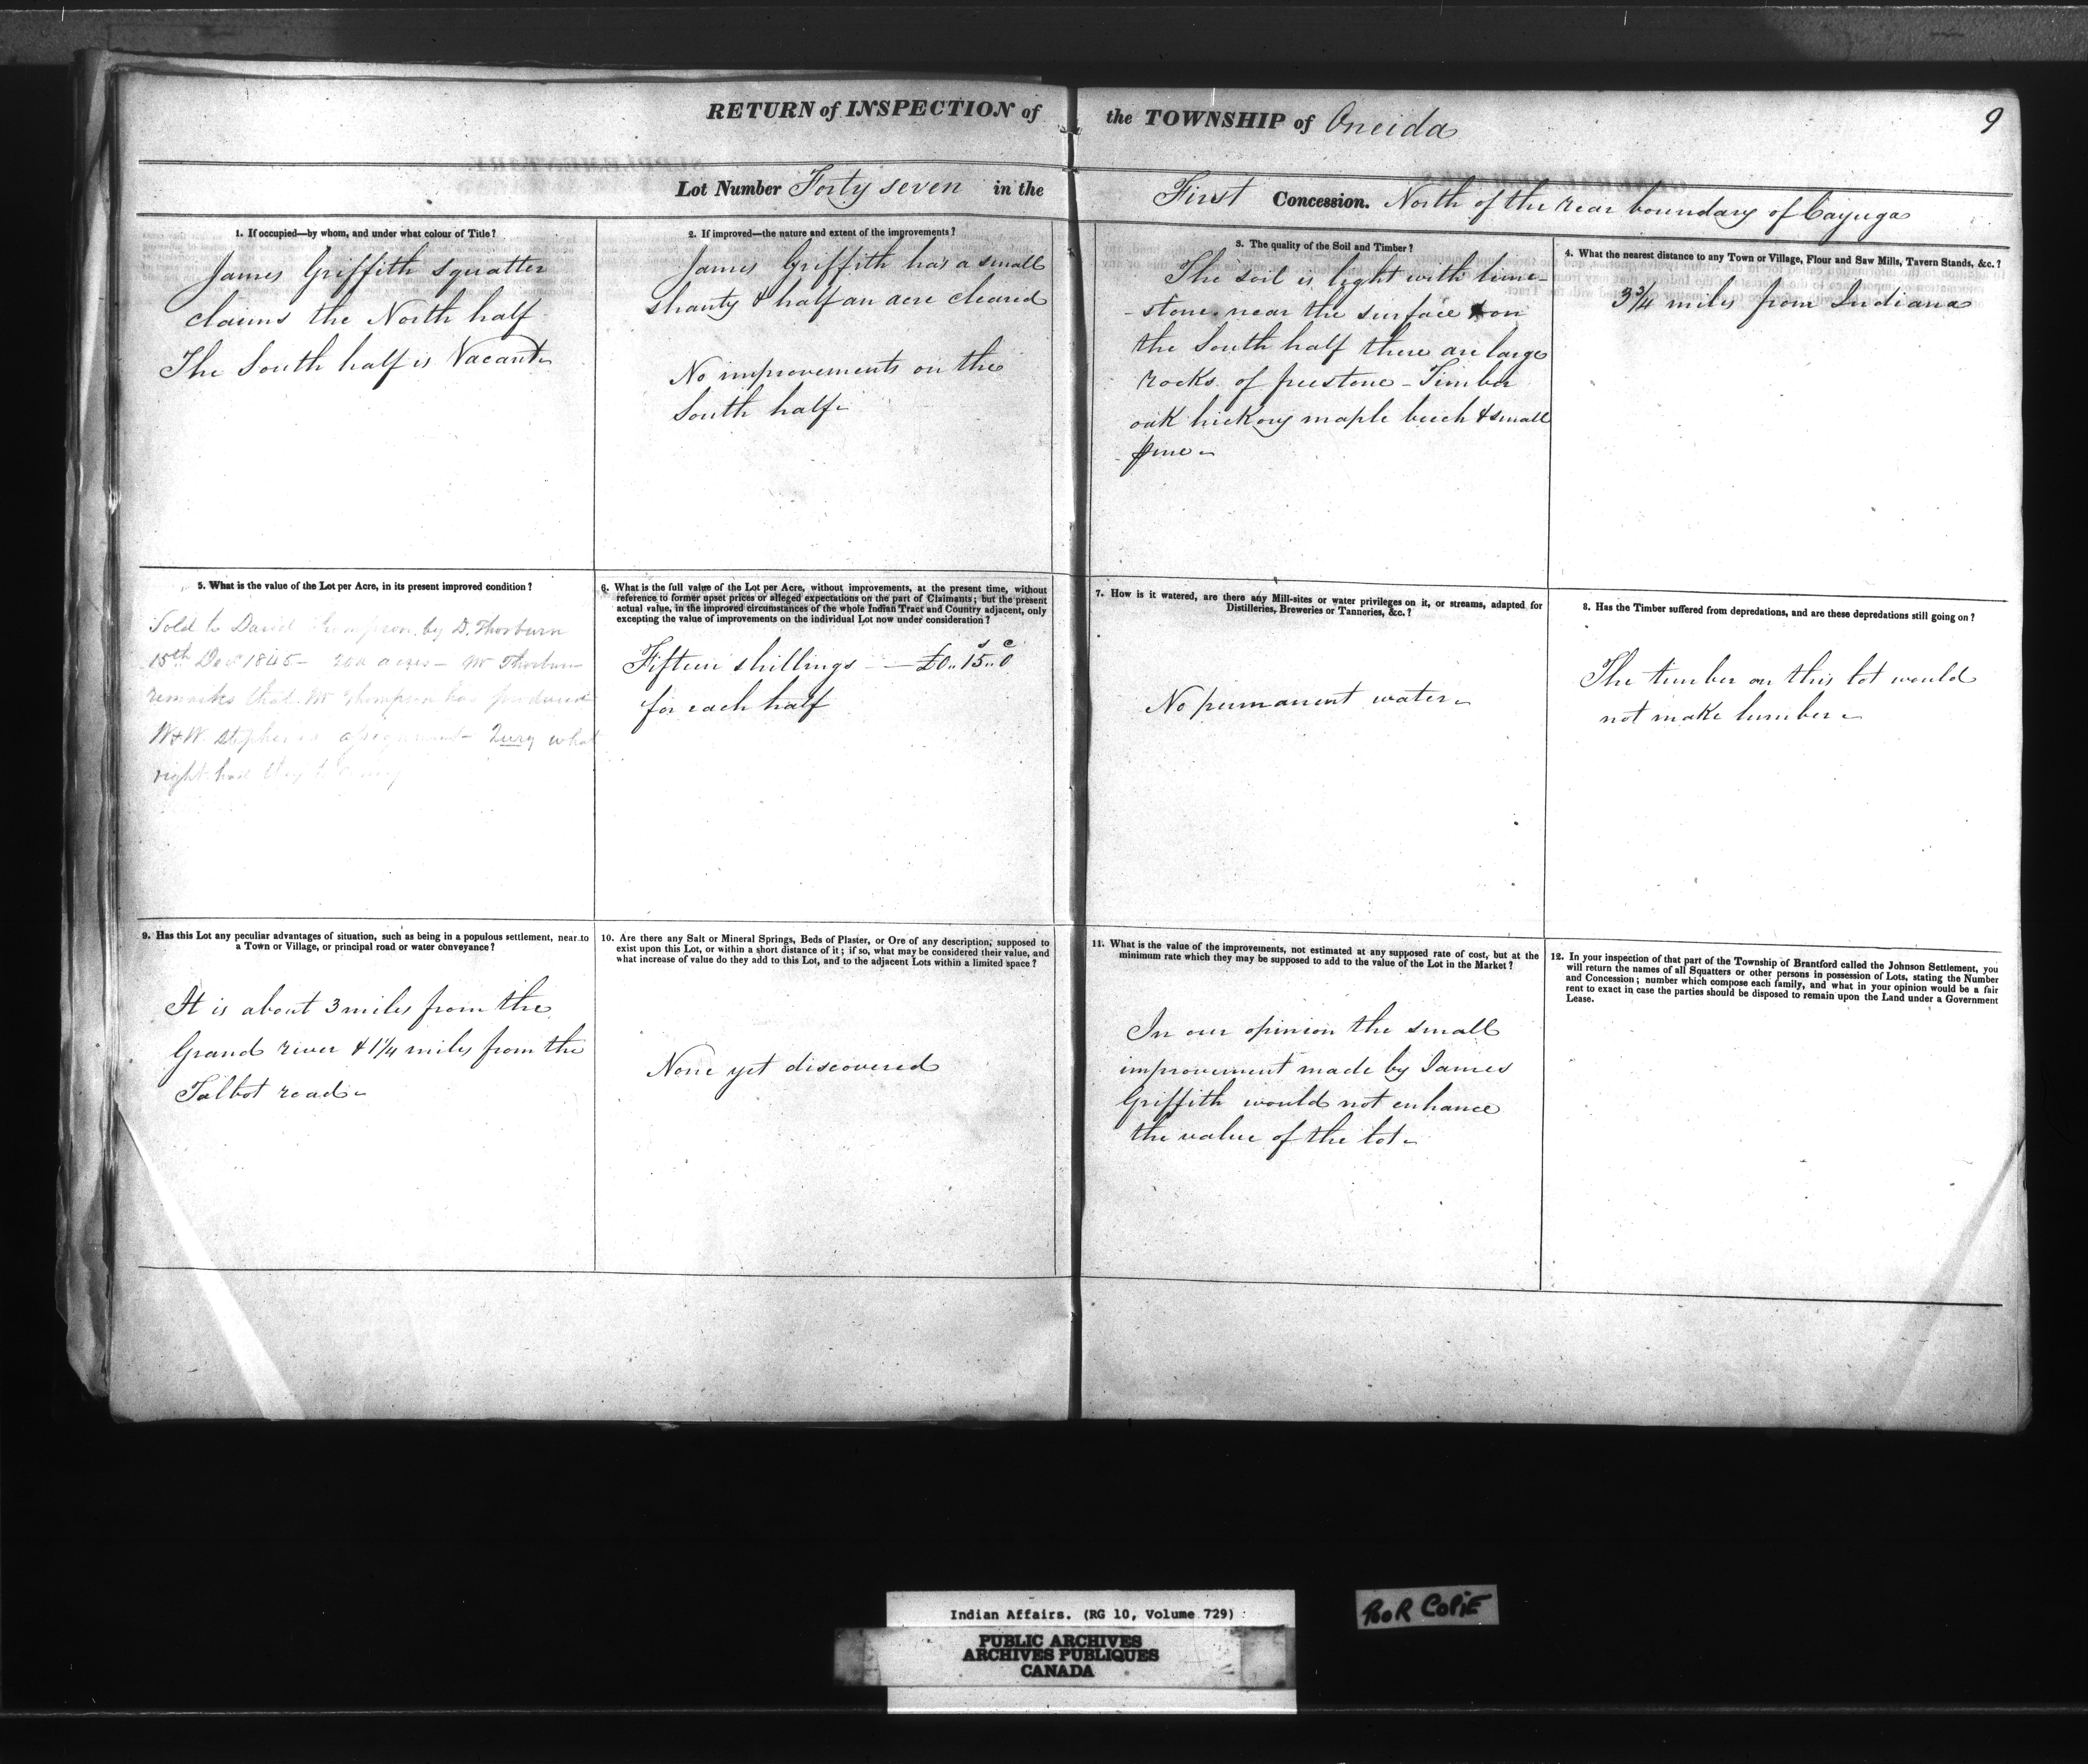 RETURN of INSPECTION of the TOWNSHIP of Oneida
9
Lot Number Forty seven in the First Concession. North of the rear boundary of Cayuga
1. If occupied—by whom, and under what colour of Title?
James Griffith squatter
claims the North half
The South half is Vacant
2. If improved—the nature and extent of the improvements?
James Griffith has a small
shanty & half an acre cleared
No improvements on the
South half
3. The quality of the Soil and Timber?
The soil is light with lime-
-stone near the surface & on
the South half there are large
rocks of freestone - Timber
oak hickory maple beech & small
pine
4. What the nearest distance to any Town or Village, Flour and Saw Mills, Tavern Stands, &c.?
3 3/4 miles from Indiana
5. What is the value of the Lot per Acre, in its present improved condition?
Sold to David Thompson by D. Thorburn
15th Decr 1845 - 200 acres - Mr Thorburn
remarks that Mr Thompson has produced
W & W. Stephen's assignment - Query what
right had they to
6. What is the full value of the Lot per Acre, without improvements, at the present time, without
reference to former upset prices or alleged expectations on the part of Claimants; but the present
actual value, in the improved circumstances of the whole Indian Tract and Country adjacent, only
excepting the value of improvements on the individual Lot now under consideration?
Fifteen shillings — £0.. 15.. 0
for each half
7. How is it watered, are there any Mill-sites or water privileges on it, or streams, adapted for
Distilleries, Breweries or Tanneries, &c.?
No permanent water
8. Has the Timber suffered from depredations, and are these depredations still going on?
The timber on this lot would
not make lumber
9. Has this Lot any peculiar advantages of situation, such as being in a populous settlement, near to
a Town or Village, or principal road or water conveyance?
It is about 3 miles from the
Grand river & 1 1/4 miles from the
Talbot road
10. Are there any Salt or Mineral Springs, Beds of Plaster, or Ore of any description, supposed to
exist upon this Lot, or within a short distance of it; if so, what may be considered their value, and
what increase of value do they add to this Lot, and to the adjacent Lots within a limited space?
None yet discovered
11. What is the value of the improvements, not estimated at any supposed rate of cost, but at the
minimum rate which they may be supposed to add to the value of the Lot in the Market?
In our opinion the small
improvement made by James
Griffith would not enhance
the value of the lot
12. In your inspection of that part of the Township of Brantford called the Johnson Settlement, you
will return the names of all Squatters or other persons in possession of Lots, stating the Number
and Concession; number which compose each family, and what in your opinion would be a fair
rent to exact in case the parties should be disposed to remain upon the Land under a Government
Lease.
Indian Affairs. (RG 10, Volume 729)
PUBLIC ARCHIVES
ARCHIVES PUBLIQUES
CANADA
POOR COPIE